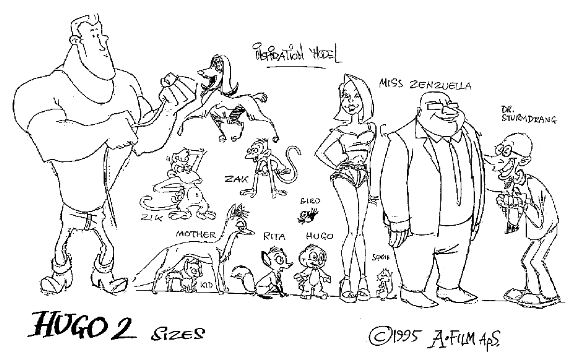 INSPIRATION MODEL
MISS ZENZUELLA
DR.
STURMDRANG
ZAK
ZIK
BIRD
MOTHER
RITA
HUGO
KID
HUGO 2 SIZES
©1995 A•FILM ApS.